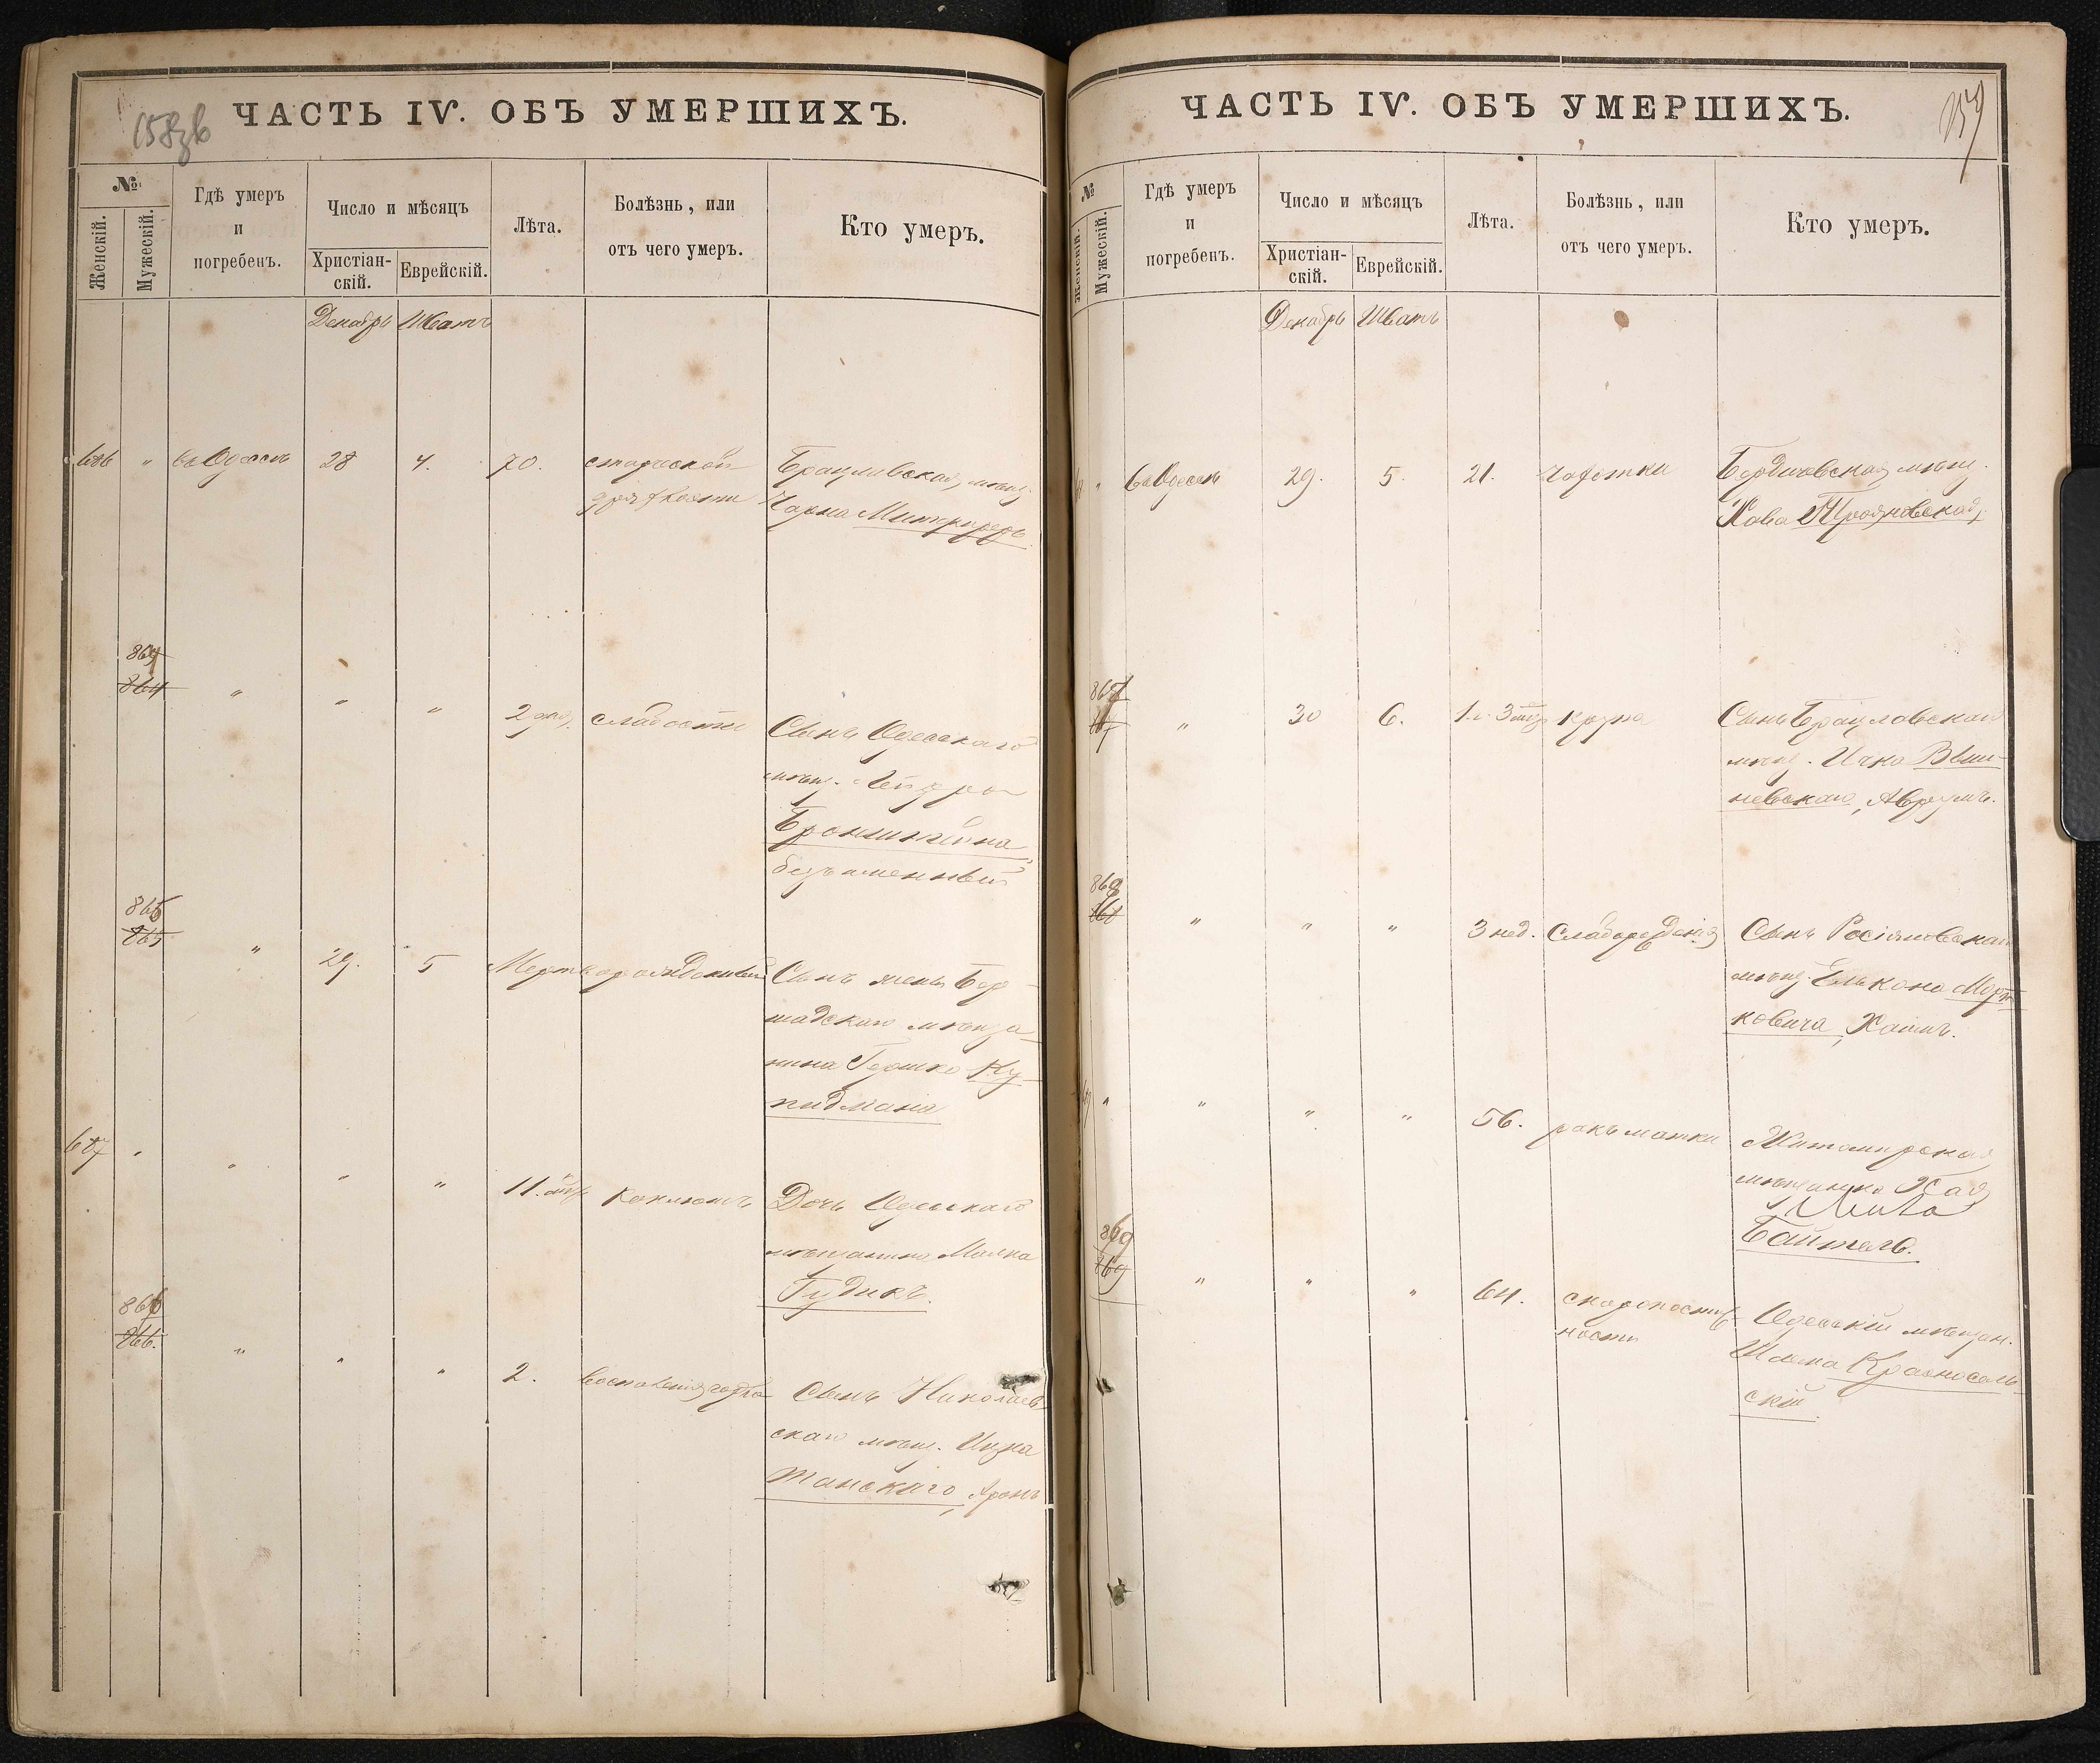 158 об
ЧАСТЬ IV. ОБЪ УМЕРШИХЪ.
№
Женскій.
Мужескій.
Гдѣ умеръ
и
погребенъ.
Число и мѣсяцъ
Христіан-
скій.
Еврейскій.
Лѣта.
Болѣзнь, или
отъ чего умеръ.
Кто умеръ.
Декабрь Шватъ
686 " въ Одессѣ 28 4. 70. старческой Брацлавская мѣщ.
дряхлости Чарна
864
864
" " " 2 дня, слабости Сынъ Одесскаго
мѣщ. Лейзера
безъименный
865
865
" 29. 5 Мертворожденный Сынъ жены Бер-
шадскаго мѣща-
нина Гершко Ку-
пидмана
687 " " " " 11. мѣс. коклюшъ Дочь Одесскаго
мѣщанина Малка
Гудикъ.
866
866.
" " " 2. воспаленія горла Сынъ Николаев-
скаго мѣщ. Ицка
Танскаго, Аронъ
159
ЧАСТЬ IV. ОБЪ УМЕРШИХЪ.
№
Женскій.
Мужескій.
Гдѣ умеръ
и
погребенъ.
Число и мѣсяцъ
Христіан-
скій.
Еврейскій.
Лѣта.
Болѣзнь, или
отъ чего умеръ.
Кто умеръ.
Декабрь Шватъ
" въ Одессѣ 29. 5. 21. Чахотки Бердичевская мѣщ.
Хава Трояновская,
867
" 30 6. 1 г. 3 мѣс крупа Сынъ Брацлавскаго
мѣщ. Ицко Виш-
невскаго, Аврумъ.
868
" " " 3 нед. Слаборожденія Сынъ
мѣщ. Елькона Морт-
ковича, Хаимъ.
" " " " 56. ракъ матки Житомирская
мѣщанка Хая
Байтель.
869
869
" " " 64. скоропостиж-
ности
Одесскій мѣщан.
Шлема Красносель-
скій.